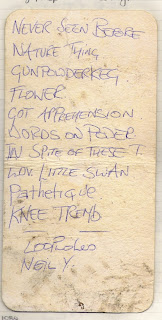 NEVER SEEN BEFORE
NATURE THING
GUNPOWDERKEG
FLOWER
GOT APPREHENSION
WORDS ON POWER
IN SPITE OF THESE T.
LUV LITTLE SWAN
Pathetique
KNEE TREMB
NEIL Y.